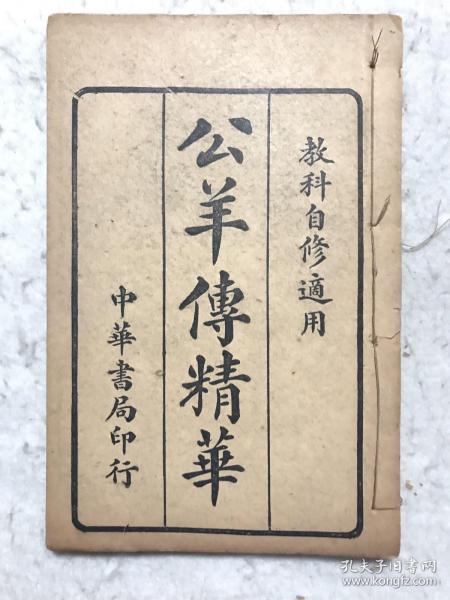 教科自修適用
公羊傳精華
中華書局印行
孔夫子旧书网
www.kongfz.com